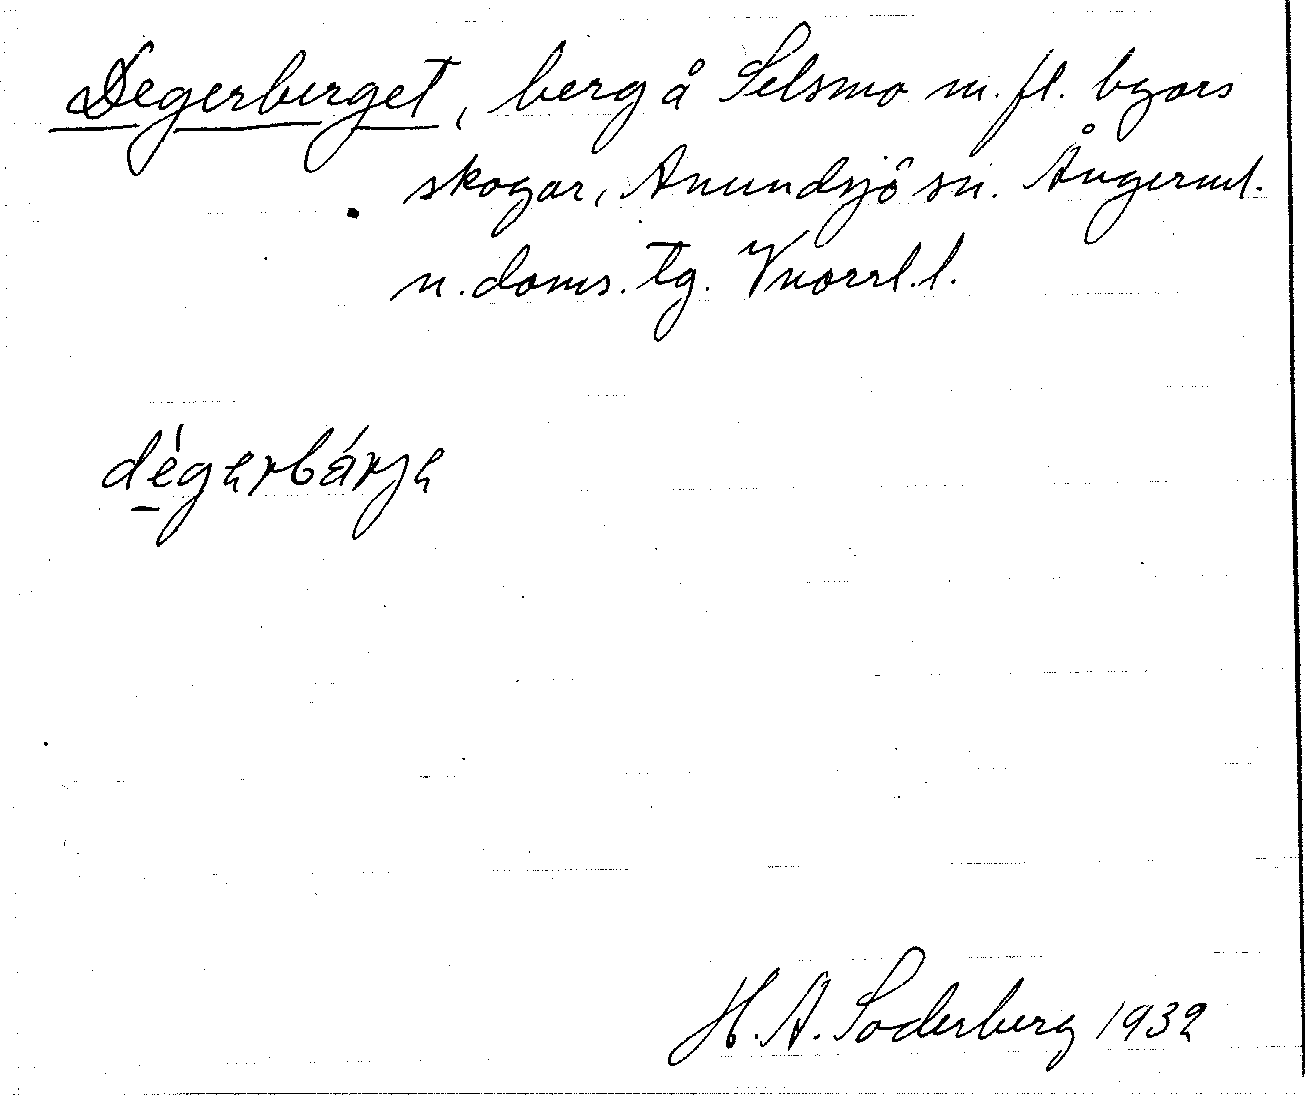 Degerberget, berg å Selsmo m. fl. byars
skogar, Anundsjö sn. Ångerml.
n. doms. tg. Vnorrl. l.
dégerbárje
H. A. Söderberg 1932